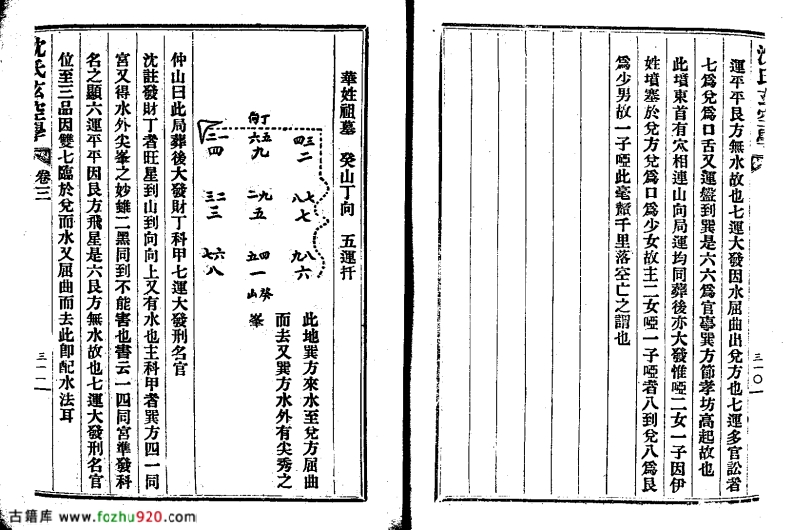 沈氏玄空學
三一〇
運平平艮方無水故也七運大發因水屈曲出兌方也七運多官訟者
七爲兌爲口舌又運盤到巽是六六爲官事巽方節孝坊高起故也
此墳東首有穴相連山向局運均同葬後亦大發惟啞二女一子因伊
姓墳塞於兌方兌爲口爲少女故主二女啞一子啞者八到兌八爲艮
爲少男故一子啞此毫釐千里落空亡之謂也
華姓祖墓 癸山丁向 五運扞
丁向
一二四
五六九
三四二
二三三
九二五
七八七
六七八
四五一
八九六
癸山
峯
此地巽方來水至兌方屈曲
而去又巽方水外有尖秀之
仲山曰此局葬後大發財丁科甲七運大發刑名官
沈註發財丁者旺星到山到向向上又有水也主科甲者巽方四一同
宮又得水外尖峯之妙雖二黑同到不能害也書云一四同宮準發科
名之顯六運平平因艮方飛星是六艮方無水故也七運大發刑名官
位至三品因雙七臨於兌而水又屈曲而去此即配水法耳
沈氏玄空學 卷三
三一一
古籍库 www.fozhu920.com